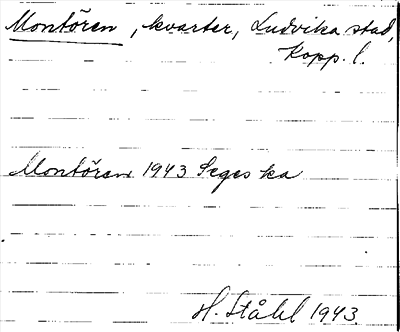 Montören, kvarter, Ludvika stad,
Kopp. l.
Montören 1943 Seges ka
H. Ståhl 1943